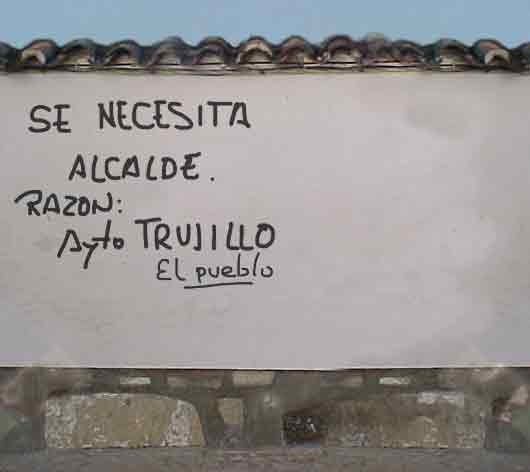 SE NECESITA
ALCALDE.
RAZON:
Ayto TRUJILLO
El pueblo